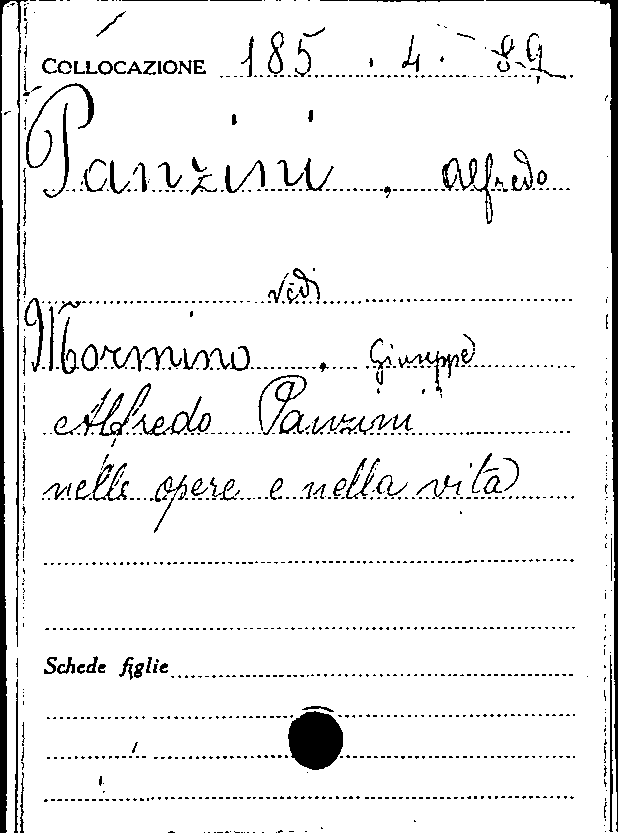 COLLOCAZIONE 185 . 4 . 89
Panzini , Alfredo
vedi
Mormino , Giuseppe
Alfredo Panzini
nelle opere e nella vita
Schede figlie